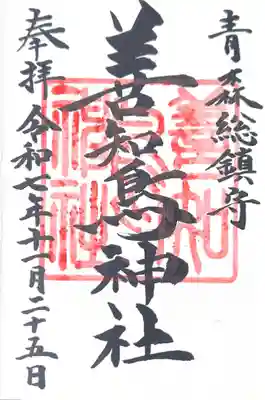 青森総鎮守
善知鳥神社
奉拝 令和七年十一月二十五日
善知鳥神社